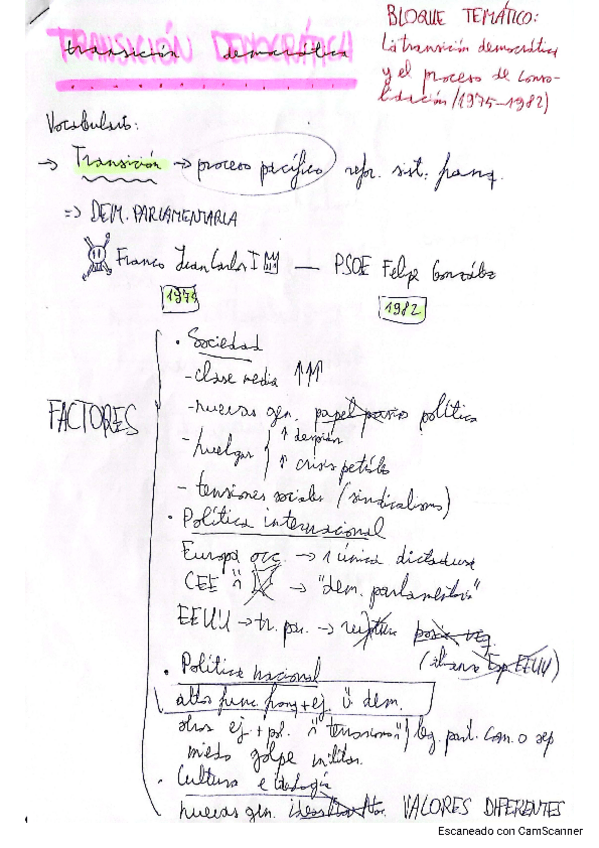 TRANSICIÓN DEMOCRÁTICA
transición democrática
BLOQUE TEMÁTICO:
La transición democrática
y el proceso de conso-
lidación (1975-1982)
Vocabulario:
→ Transición → proceso pacífico refor. sist. franq.
=> DEM. PARLAMENTARIA
Franco Juan Carlos I — PSOE Felipe González
1982
FACTORES
• Sociedad
- clase media ↑↑↑
- nuevas gen. papel política
- huelgas ↑
↑ crisis petróleo
- tensiones sociales (sindicalismo)
• Política internacional
Europa occ. → 1 única dictadura
CEE → "dem. parlamentaria"
EEUU → tr. → ruptura
(alianza Esp EEUU)
• Política nacional
altos func. franq + ej. dem.
otros ej. + pol. leg. part. com. o sep
miedo golpe militar.
• Cultura e ideología
nuevas gen. VALORES DIFERENTES
Escaneado con CamScanner